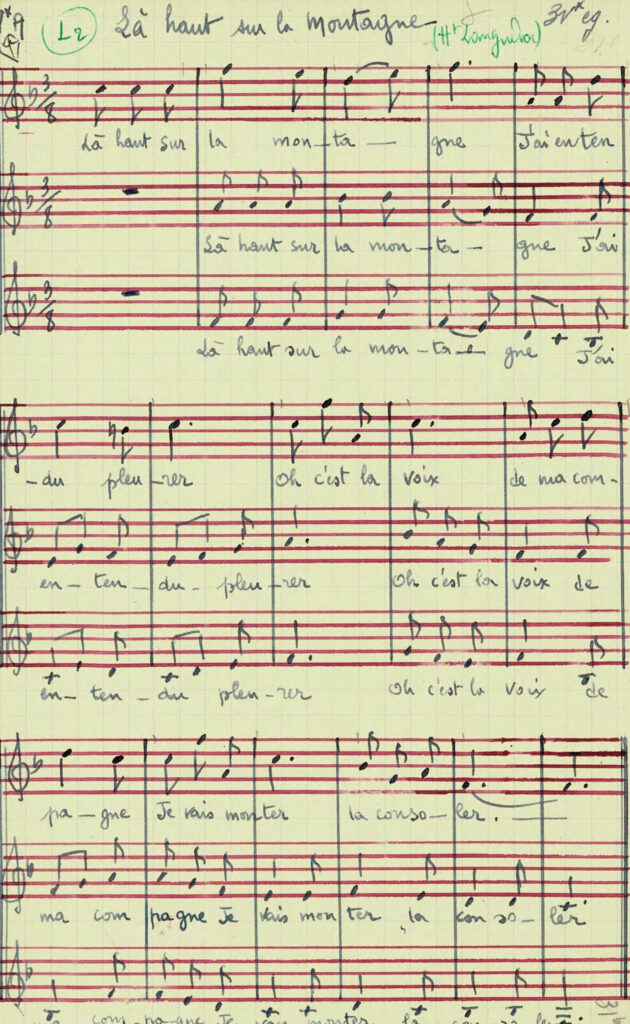 L2 Là haut sur la montagne (Ht Languedoc) 3 Vx eg.
3/8 Là haut sur la mon_ta_gne J'ai en ten
3/8 Là haut sur la mon_ta_gne J'ai
3/8 Là haut sur la mon_ta_e gne J'ai
_du pleu_rer Oh c'est la voix de ma com_
en_ten_du_pleu_rer Oh c'est la voix de
en_ten_du pleu_rer Oh c'est la voix de
pa_gne Je vais monter la conso_ler.
ma com pagne Je vais mon ter la con so_ler
com_pa_gne Je vais monter la